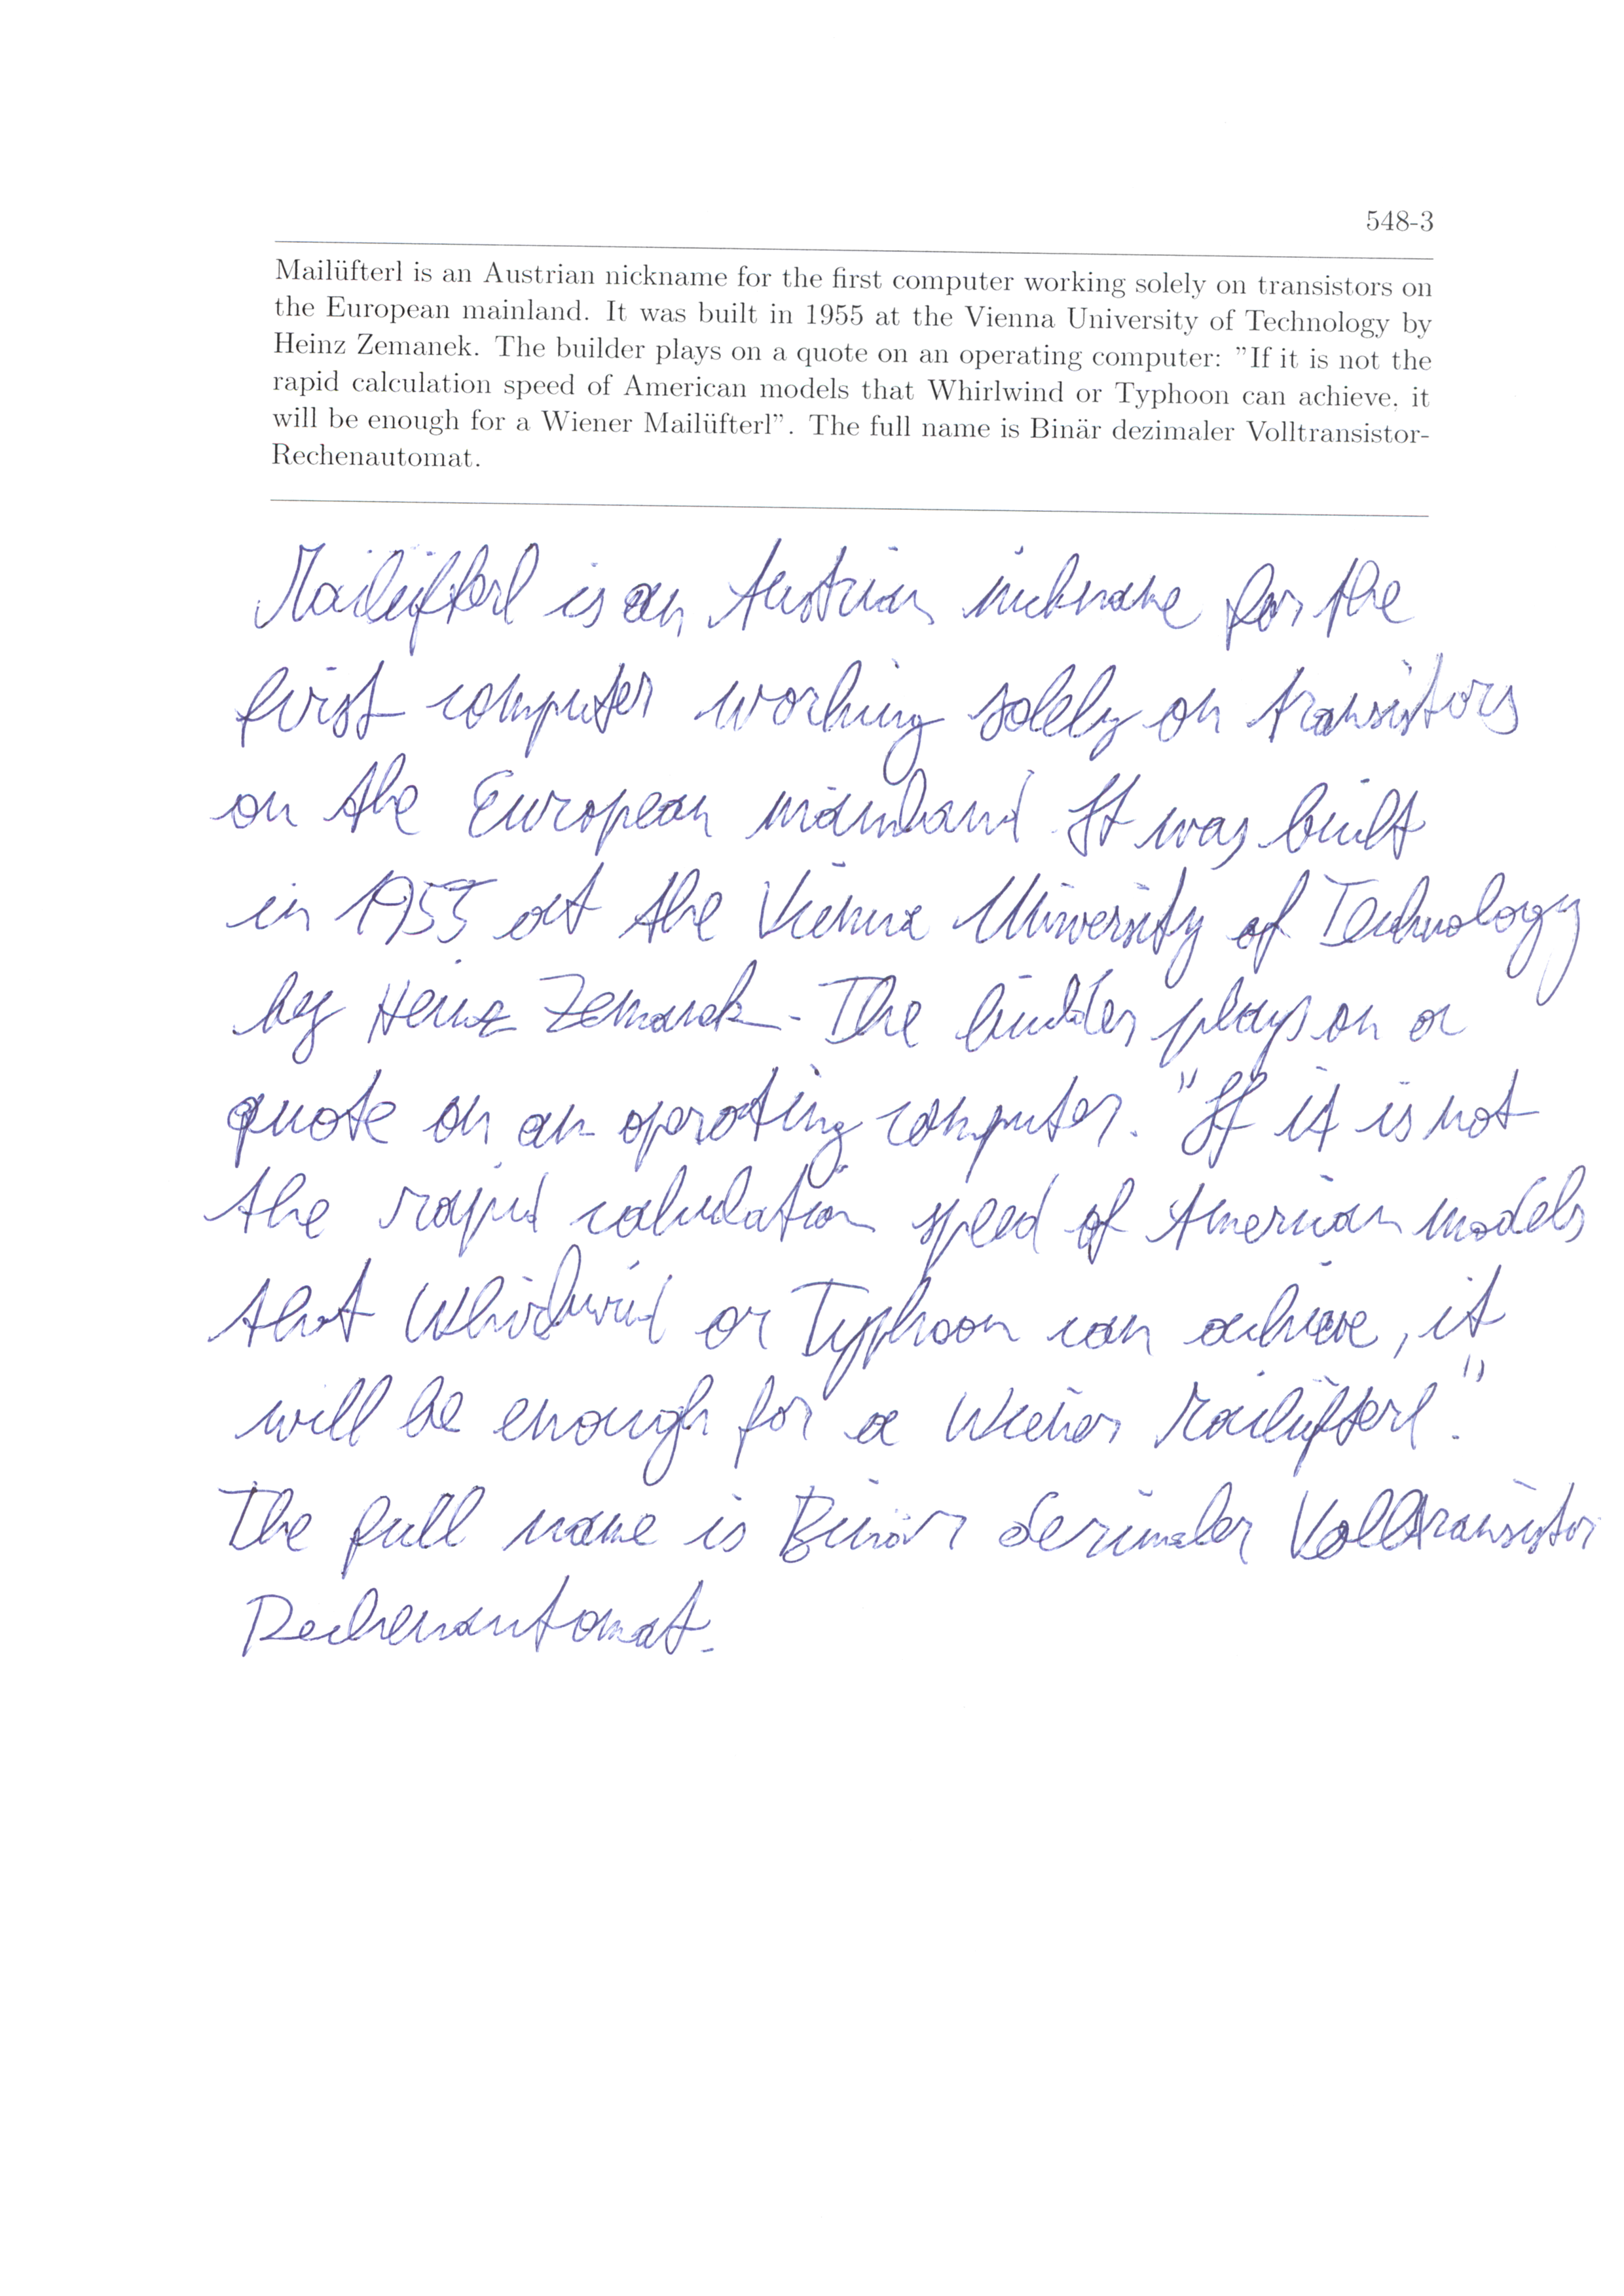 548-3
Mailüfterl is an Austrian nickname for the first computer working solely on transistors on
the European mainland. It was built in 1955 at the Vienna University of Technology by
Heinz Zemanek. The builder plays on a quote on an operating computer: "If it is not the
rapid calculation speed of American models that Whirlwind or Typhoon can achieve, it
will be enough for a Wiener Mailüfterl". The full name is Binär dezimaler Volltransistor-
Rechenautomat.
Mailüfterl is an Austrian nickname for the
first computer working solely on transistors
on the European mainland. It was built
in 1955 at the Vienna University of Technology
by Heinz Zemanek. The builder plays on a
quote on an operating computer. "If it is not
the rapid calculation speed of American models
that Whirlwind or Typhoon can achieve, it
will be enough for a Wiener Mailüfterl".
The full name is Binär dezimaler Volltransistor
Rechenautomat.